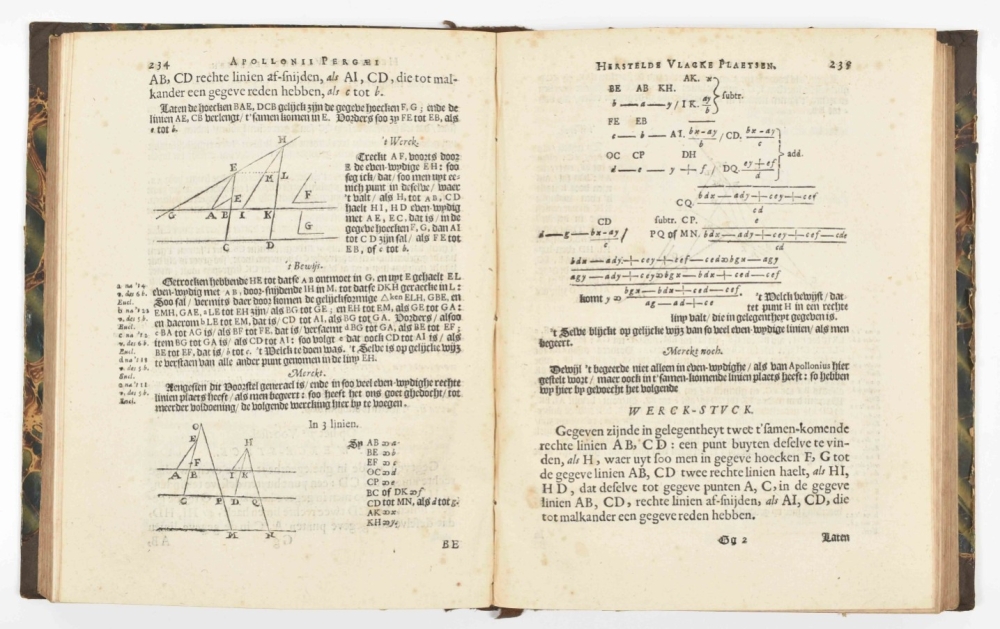 234 APOLLONII PERGÆI
AB, CD rechte linien af-snijden, als AI, CD, die tot mal-
kander een gegeve reden hebben, als c tot b.
Laten de hoecken BAE, DCB gelijck zijn de gegeve hoecken F, G; ende de
linien AE, CB verlengt/ t'samen komen in E. Vorders soo zy FE tot EB, als
c tot b.
't Werck.
Treckt AF, voorts door
E de even-wydige EH: soo
seg ick/ dat/ soo men uyt ee-
nich punt in deselve/ waer
't valt/ als H, tot AB, CD
haelt HI, HD even-wydig
met AE, EC. dat is/ in de
gegeve hoecken F, G, dan AI
tot CD zijn sal/ als FE tot
EB, of c tot b.
H
E
M L
F
E
G A B I K
G
C D
't Bewijs.
Getrocken hebbende HE tot datse AB ontmoet in G, en uyt E gehaelt EL
even-wydig met AB, door-snijdende IH in M, tot datse DKH geraecke in L:
Soo sal/ vermits daer door komen de gelijckformige △ken ELH, GBE, en
EMH, GAE, a LE tot EH zijn/ als BG tot GE; en EH tot EM, als GE tot GA:
en daerom b LE tot EM, dat is/ CD tot AI, als BG tot GA. Vorders/ alsoo
c BA tot AG is/ als BF tot FE, dat is/ versaemt d BG tot GA, als BE tot EF;
item BG tot GA is/ als CD tot AI: soo volgt e dat oock CD tot AI is/ als
BE tot EF, dat is/ b tot c. 't Welck te doen was. 't Selve is op gelijcke wijs
te verstaen van alle ander punt genomen in de liny EH.
Merckt.
Aengesien dit Voorstel generael is/ ende in soo veel even-wydighe rechte
linien plaets heeft/ als men begeert: soo heeft het ons goet ghedocht/ tot
meerder voldoening/ de volgende wercking hier by te voegen.
In 3 linien.
Zy AB ∞ a
BE ∞ b
EF ∞ c
OC ∞ d
CP ∞ e
BC of DK ∞ f
CD tot MN, als d tot g.
AK ∞ x
KH ∞ y.
O
E H
F
A B I K
C P D Q
M N
BE
HERSTELDE VLACKE PLAETSEN. 235
AK. x
BE AB KH.
b — a — y / IK. ay/b } subtr.
FE EB
c — b — AI. bx-ay/b / CD. bx-ay/c
OC CP DH
d — e — y + f / DQ. ey+ef/d } add.
CQ. bdx — ady + cey + cef/cd
CD subtr. CP. e
d — g — bx-ay/c / PQ of MN. bdx — ady + cey + cef — cde/cd
bdx — ady + cey + cef — ced ∞ bgx — agy
agy — ady + cey ∞ bgx — bdx + ced — cef
komt y ∞ bgx — bdx + ced — cef/ag — ad + ce. 't Welck bewijst/ dat
tet punt H in een rechte
liny valt/ die in gelegentheyt gegeven is.
't Selve blijckt op gelijcke wijs van so veel even-wydige linien/ als men
begeert.
Merckt noch.
Dewijl 't begeerde niet alleen in even-wydighe/ als van Apollonius hier
gestelt wort/ maer oock in t'samen-komende linien plaets heeft: so hebben
wy hier by gevoecht het volgende
WERCK-STVCK.
Gegeven zijnde in gelegentheyt twee t'samen-komende
rechte linien AB, CD: een punt buyten deselve te vin-
den, als H, waer uyt soo men in gegeve hoecken F, G tot
de gegeve linien AB, CD twee rechte linien haelt, als HI,
HD, dat deselve tot gegeve punten A, C, in de gegeve
linien AB, CD, rechte linien af-snijden, als AI, CD, die
tot malkander een gegeve reden hebben.
Gg 2 Laten